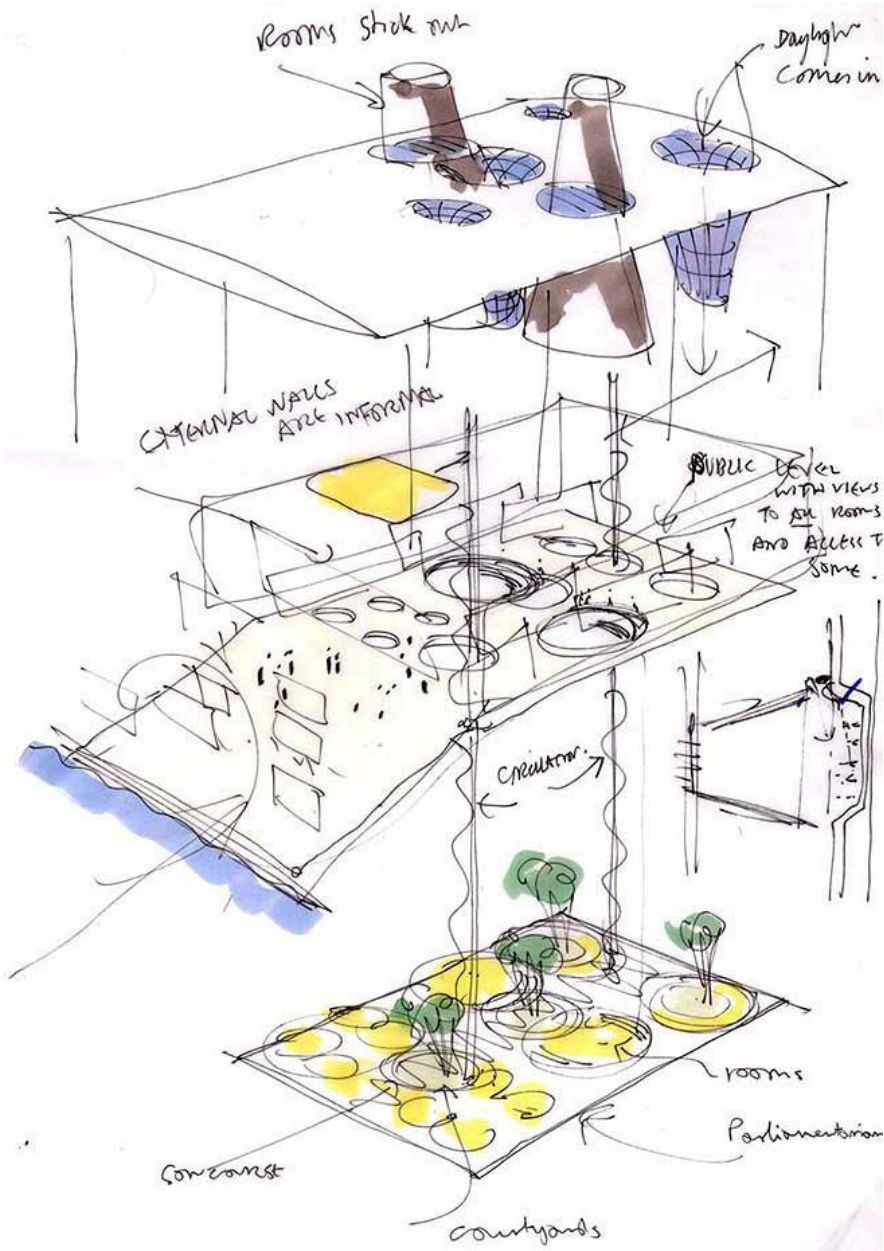 Rooms stick out
Daylight
Comes in
EXTERNAL WALLS
ARE INFORMAL
PUBLIC LEVEL
WITH VIEWS
TO ALL ROOMS
AND ACCESS T
SOME.
CIRCULATION.
rooms
Parliamentarian
concourse
courtyards